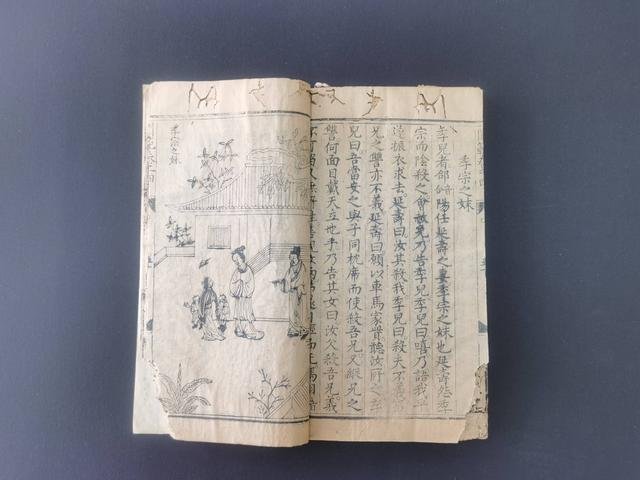 季宗之妹
季兒者郃陽任延壽之妻季宗之妹也延壽怨季
宗而陰殺之會赦免乃告季兒季兒曰嘻乃語我
遂振衣求去延壽曰汝其殺我季兒曰殺夫不義
兄之讐亦不義延壽曰願以車馬家貲聽汝所之
兒曰吾當安之與子同枕席而使殺吾兄又縱兄之
讐何面目戴天立也乎乃告其女曰汝父殺吾兄義
季宗之妹